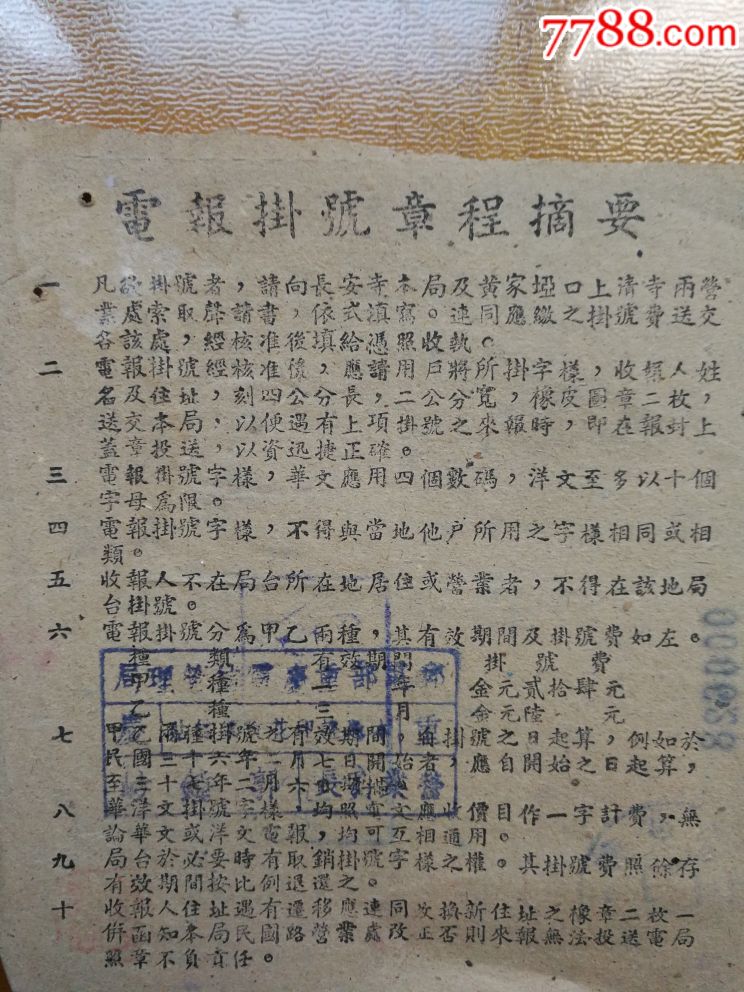 7788.com
中国收藏热线
電報掛號章程摘要
一 凡欲掛號者，請向長安寺本局及黃家埡口上清寺兩營
業處索取聲請書，依式填寫。連同應繳之掛號費送交
各該處，經核准後填給憑照收執。
二 電報掛號經核准後，應請用戶將所掛字樣，收報人姓
名及住址，刻四公分長，二公分寬，橡皮圖章二枚，
送交本局，以便遇有上項掛號之來報時，即在報封上
蓋章投送，以資迅捷正確。
三 電報掛號字樣，華文應用四個數碼，洋文至多以十個
字母為限。
四 電報掛號字樣，不得與當地他戶所用之字樣相同或相
類。
五 收報人不在局台所在地居住或營業者，不得在該地局
台掛號。
六 電報掛號分為甲乙兩種，其有效期間及掛號費如左。
種類 有效期間 掛號費
甲種 一年 金元貳拾肆元
乙種 三月 金元陸元
七 甲乙兩種掛號之有效期間，自掛號之日起算，例如於
民國三十七年
八 華洋文掛號字樣均照
作一字計費，無
論華文或洋文電報均可互相通用。
九 局台於必要時有取銷掛號字樣之權。其掛號費照餘存
有效期間按比例退還之。
十 收報人住址遇有遷移應連同改換新住址之橡章二枚一
併函知本局民國路營業處改正否則來報無法投送電局
照章不負責任。
000638